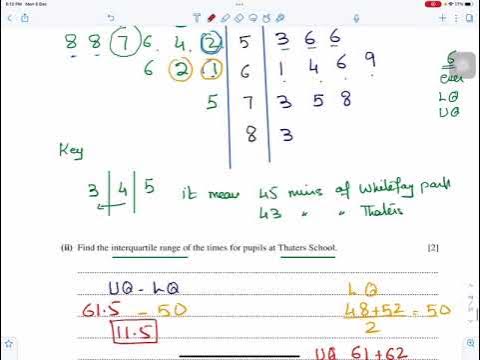 6:10 PM Mon 6 Dec
17%
8 8 7 6 4 2 5 3 6 6
6 2 1 6 1 4 6 9
5 7 3 5 8
8 3
6
even
LQ
UQ
Key
3 4 5 it mean 45 mins of Whitefay park
43 " " Thaters
(ii) Find the interquartile range of the times for pupils at Thaters School. [2]
UQ - LQ
LQ
61.5 - 50
48+52 = 50
2
11.5
UQ 61+62